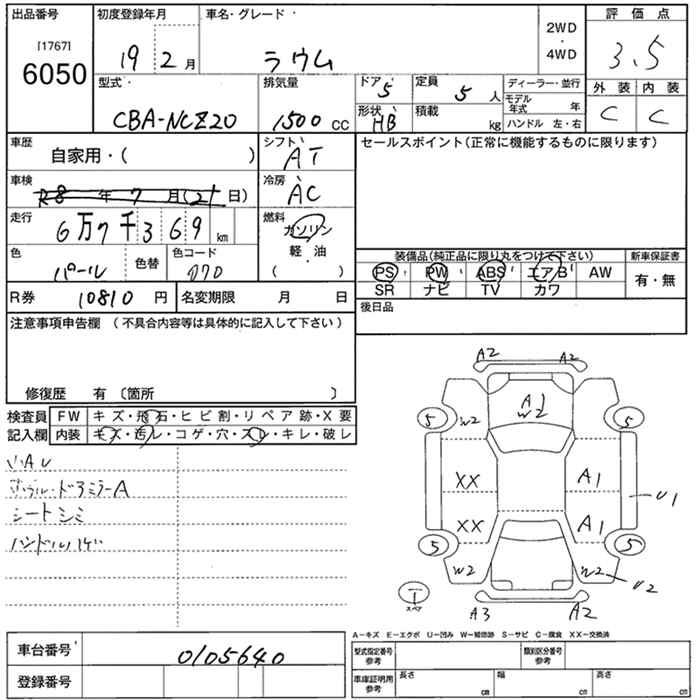 出品番号
[1767]
6050
初度登録年月
19 2 月
車名・グレード
ラウム
2WD
・
4WD
評価点
3.5
型式
CBA-NCZ20
排気量
1500 CC
ドア 5
形状 HB
定員 5 人
積載 kg
ディーラー・並行
モデル年式 年
ハンドル 左・右
外装 内装
C C
車歴
自家用・( )
車検
R8 年 7 月(21日)
走行
6万7千369 km
色
パール
色替
色コード
070
シフト
AT
冷房
AC
燃料
ガソリン
軽・油
( ・ )
セールスポイント(正常に機能するものに限ります)
装備品(純正品に限り丸をつけて下さい)
PS PW ABS エアB AW
SR ナビ TV カワ
新車保証書
有・無
後日品
R券 10810 円
名変期限 月 日
注意事項申告欄 (不具合内容等は具体的に記入して下さい)
修復歴 有 〔箇所 〕
検査員記入欄
FW キズ・飛石・ヒビ割・リペア跡・X要
内装 キズ・汚レ・コゲ・穴・スレ・キレ・破レ
小AU
シートシミ
ハンドルハゲ
A2 A2
5 W2 A1 W2 5
XX A1
U1
XX A1
5 W2 W2 5
U2
スペア
A3 A2
A−キズ E−エクボ U−凹み W−補修跡 S−サビ C−腐食 XX−交換済
車台番号 0105640
登録番号
型式指定番号参考
類別区分番号参考
車庫証明用参考
長さ cm
幅 cm
高さ cm